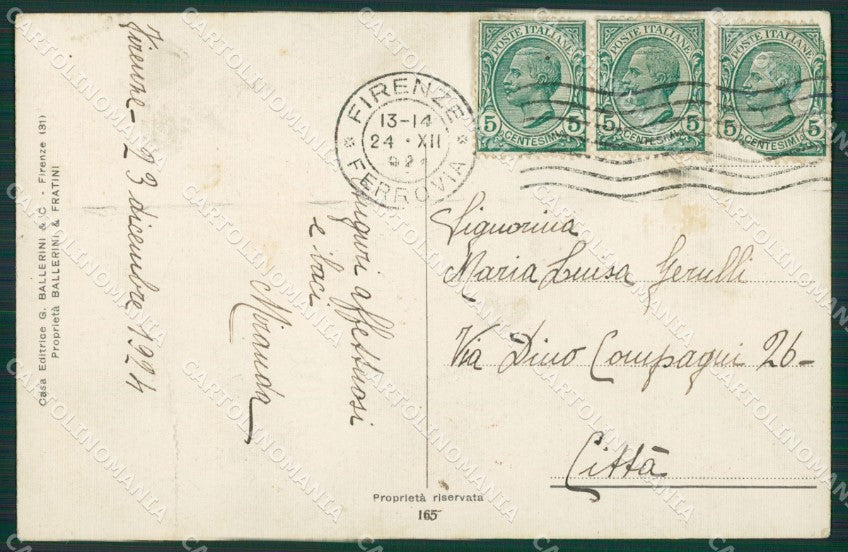 Firenze - 23 dicembre 1924
Auguri affettuosi
e baci
Miranda
Casa Editrice G. BALLERINI & C. - Firenze (31)
Proprietà BALLERINI & FRATINI
FIRENZE
13-14
24 · XII
FERROVIA
POSTE ITALIANE
5 CENTESIMI 5
POSTE ITALIANE
5 CENTESIMI 5
POSTE ITALIANE
5 CENTESIMI 5
Signorina
Maria Luisa Gerulli
Via Dino Compagni 26-
Città
Proprietà riservata
165
CARTOLINOMANIA